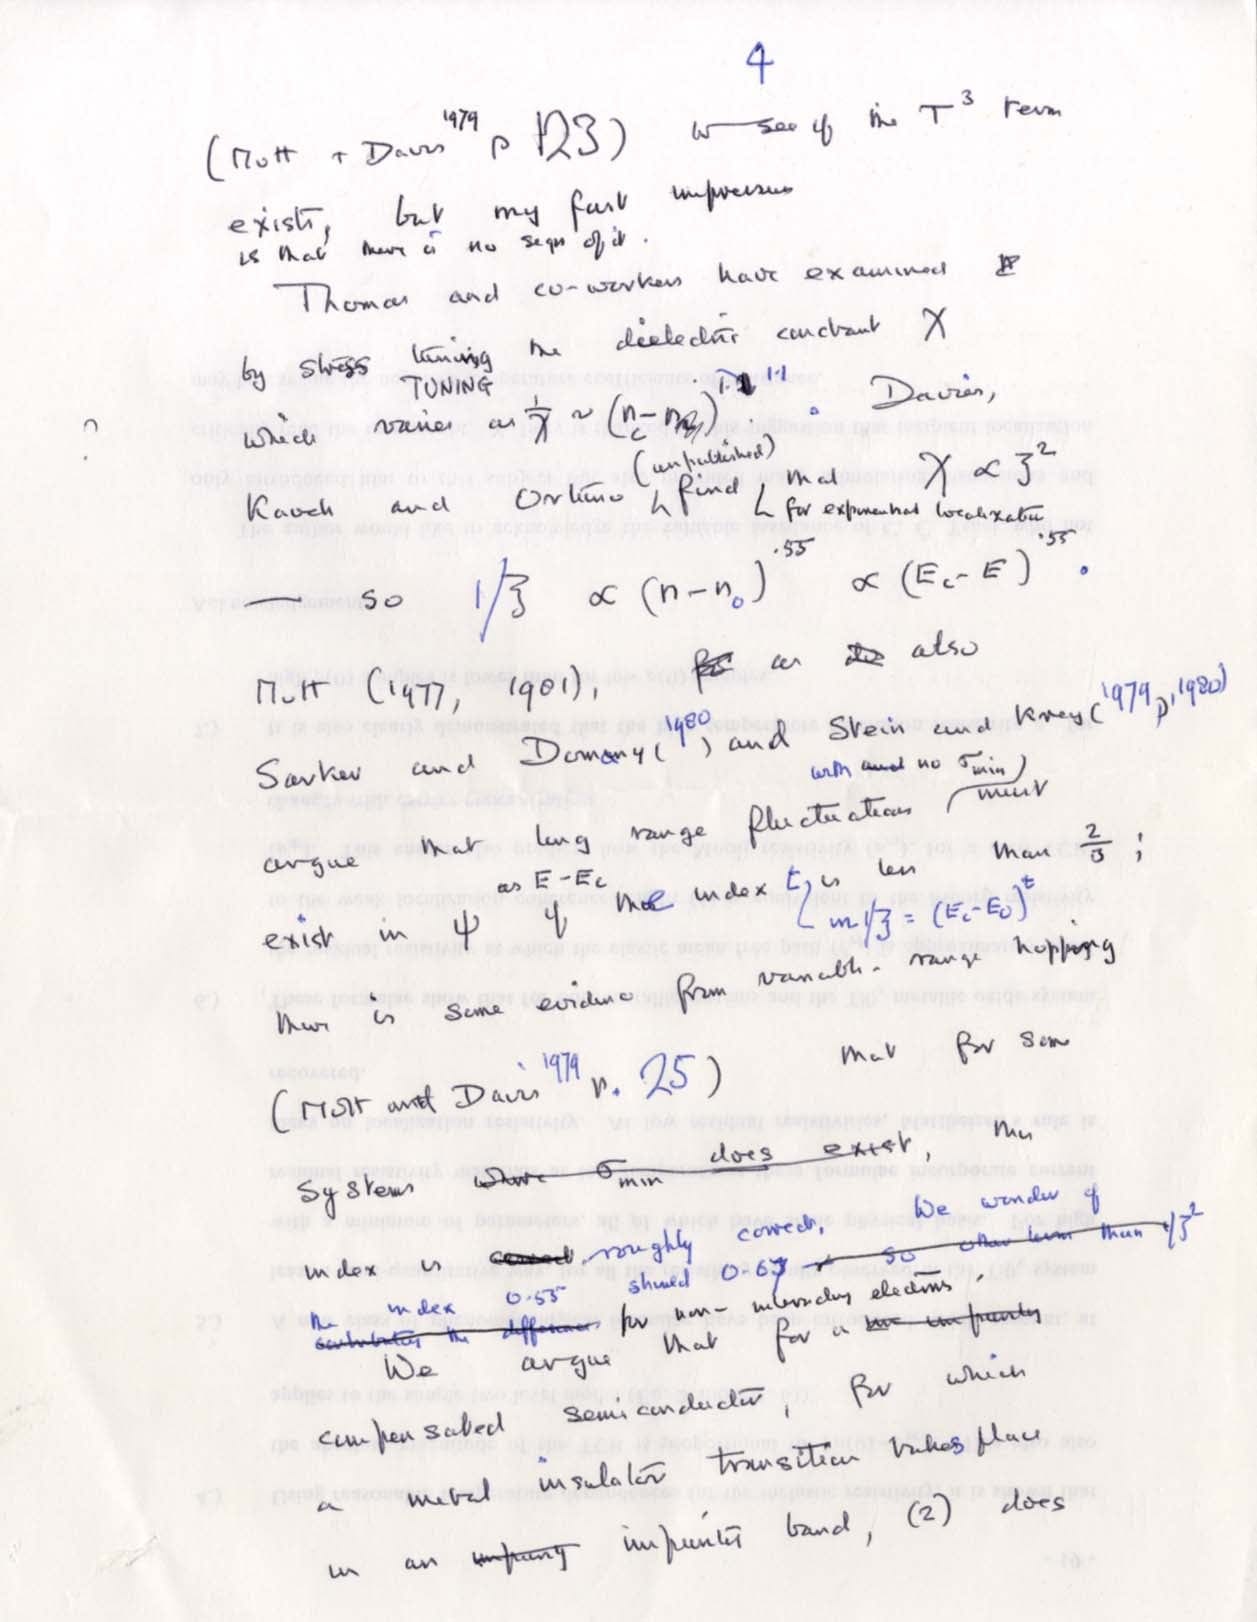 4
(Mott + Davis 1979 p 123) to see if the T³ term
exists, but my first impression
is that there is no sign of it.
Thomas and co-workers have examined
by stress tuning the dielectric constant χ
TUNING
which varies as 1/χ ~ (n_c - n)^1.1 . Davies,
(unpublished)
Kaveh and Ortuno, find, that χ ∝ ξ²
for exponential localization
— so 1/ξ ∝ (n-n_0)^.55 ∝ (E_c-E)^.55 .
Mott (1977, 1981), as also
Sarker and Domany (1980) and Stein and Krey (1979, 1980)
with and no σ_min)
argue that long range fluctuations must
exist in ψ if the index t, is less than 2/3 ;
as E-E_c
in 1/ξ = (E_c-E_0)^t
there is some evidence from variable-range hopping
(Mott and Davis 1979 p. 25) that for some
systems where σ_min does exist, the
index is roughly correct. We wonder if
the index 0.55 should 0.67 so other term than 1/ξ²
contributing the differences for non-interacting electrons.
We argue that for a
compensated semiconductor, for which
a metal insulator transition takes place
in an impurity impurity band, (2) does